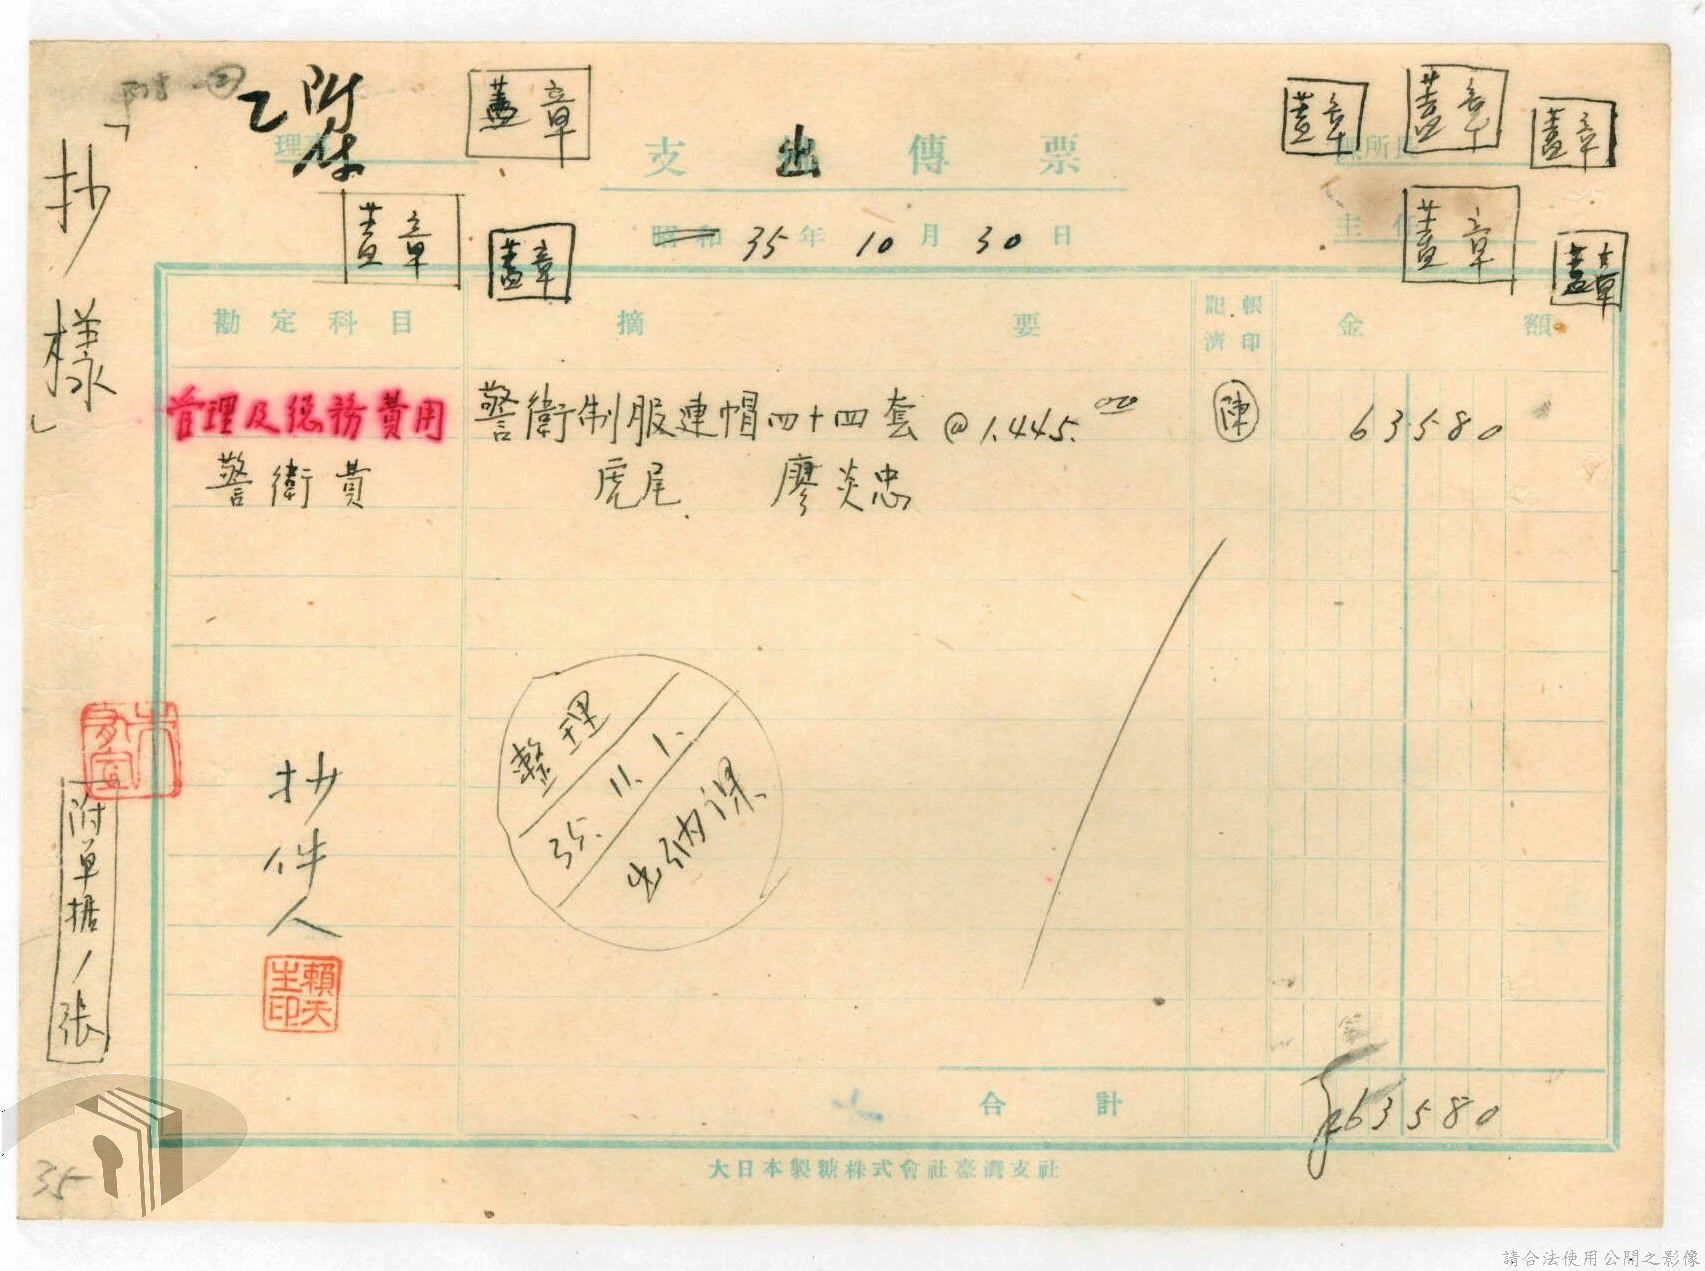 「抄樣」
附
乙件
蓋章
蓋章
蓋章
蓋章
蓋章
蓋章
蓋章
蓋章
支出傳票
昭和35年10月30日
主任
勘定科目 摘要 記帳濟印 金額
管理及總務費用 警衛制服連帽四十四套 @1,445.00 陳 63580
警衛費 虎尾 廖炎忠
整理
35.11.1.
出納課
抄件人
賴天生印
附單據1張
合計 63580
大日本製糖株式會社臺灣支社
35
請合法使用公開之影像